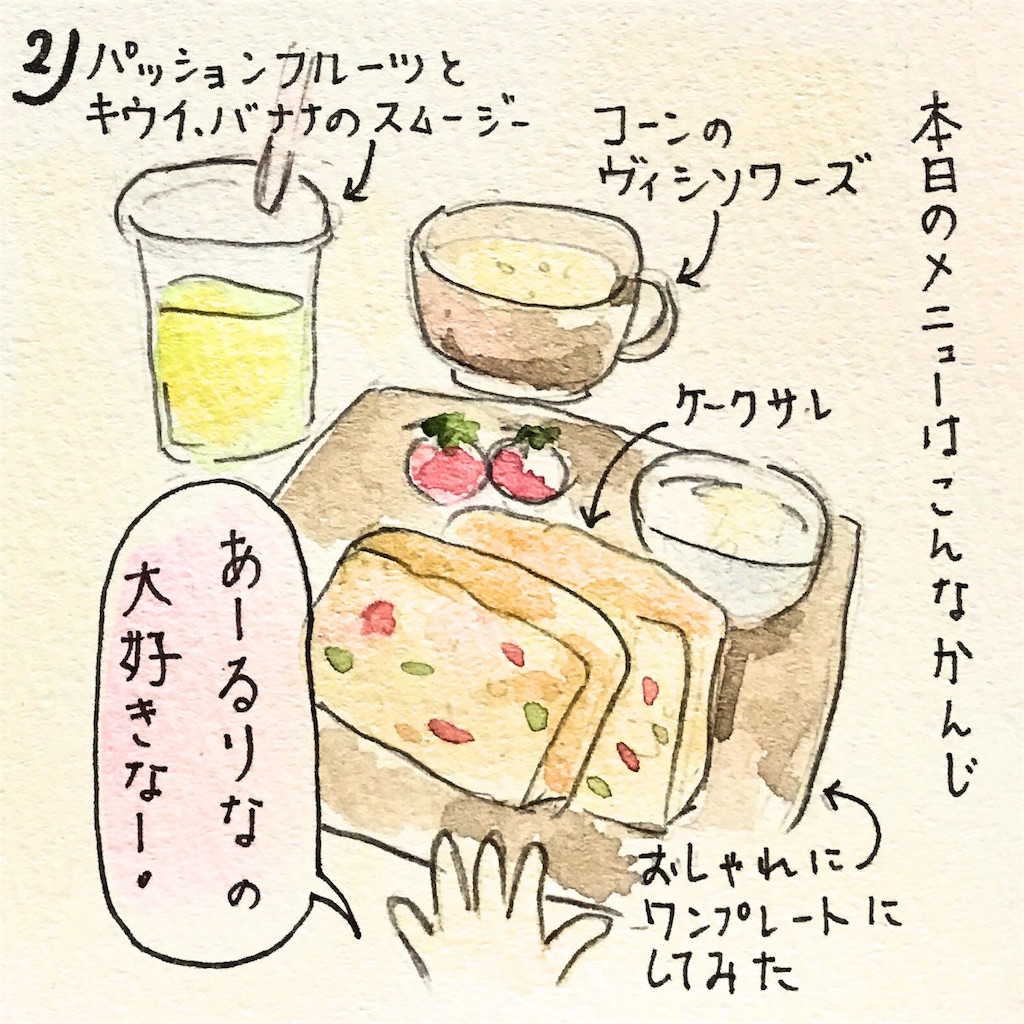 2)
本日のメニューはこんなかんじ
パッションフルーツと
キウイ、バナナのスムージー
コーンの
ヴィシソワーズ
ケークサレ
おしゃれに
ワンプレートに
してみた
あーるりなの
大好きなー。